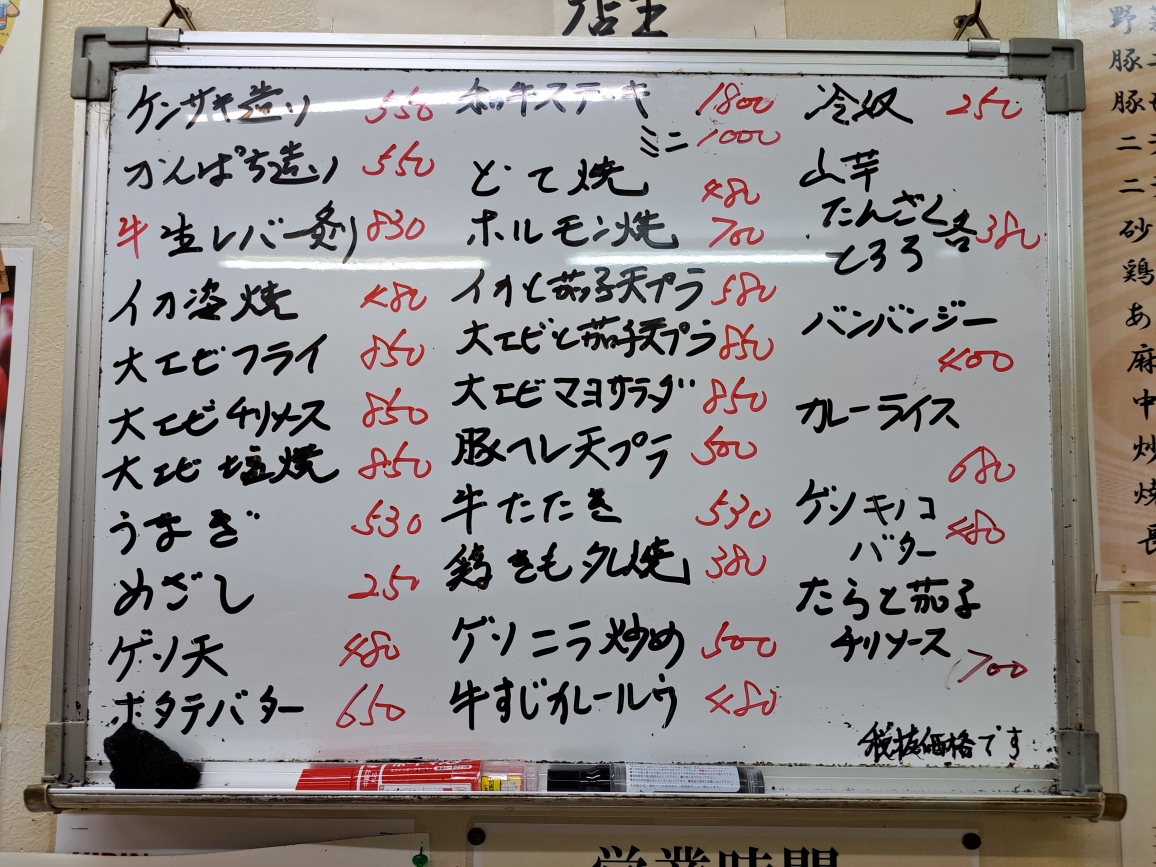 店主
ケンサキ造り 550
かんぱち造り 550
牛生レバー炙り 830
イカ姿焼 480
大エビフライ 850
大エビチリソース 850
大エビ塩焼 850
うまき 530
めざし 250
ゲソ天 480
ホタテバター 650
和牛ステーキ 1800
ミニ 1000
どて焼 480
ホルモン焼 700
イカと茄子天プラ 580
大エビと茄子天プラ 850
大エビマヨサラダ 850
豚ヘレ天プラ 500
牛たたき 530
鶏きもタレ焼 380
ゲソニラ炒め 500
牛すじカレールウ 480
冷奴 250
山芋
たんざく
とろろ 各380
バンバンジー
400
カレーライス
680
ゲソキノコ
バター 480
たらと茄子
チリソース
700
税抜価格です
野
豚
豚
二
二
砂
鶏
あ
麻
中
炒
焼
長
営業時間